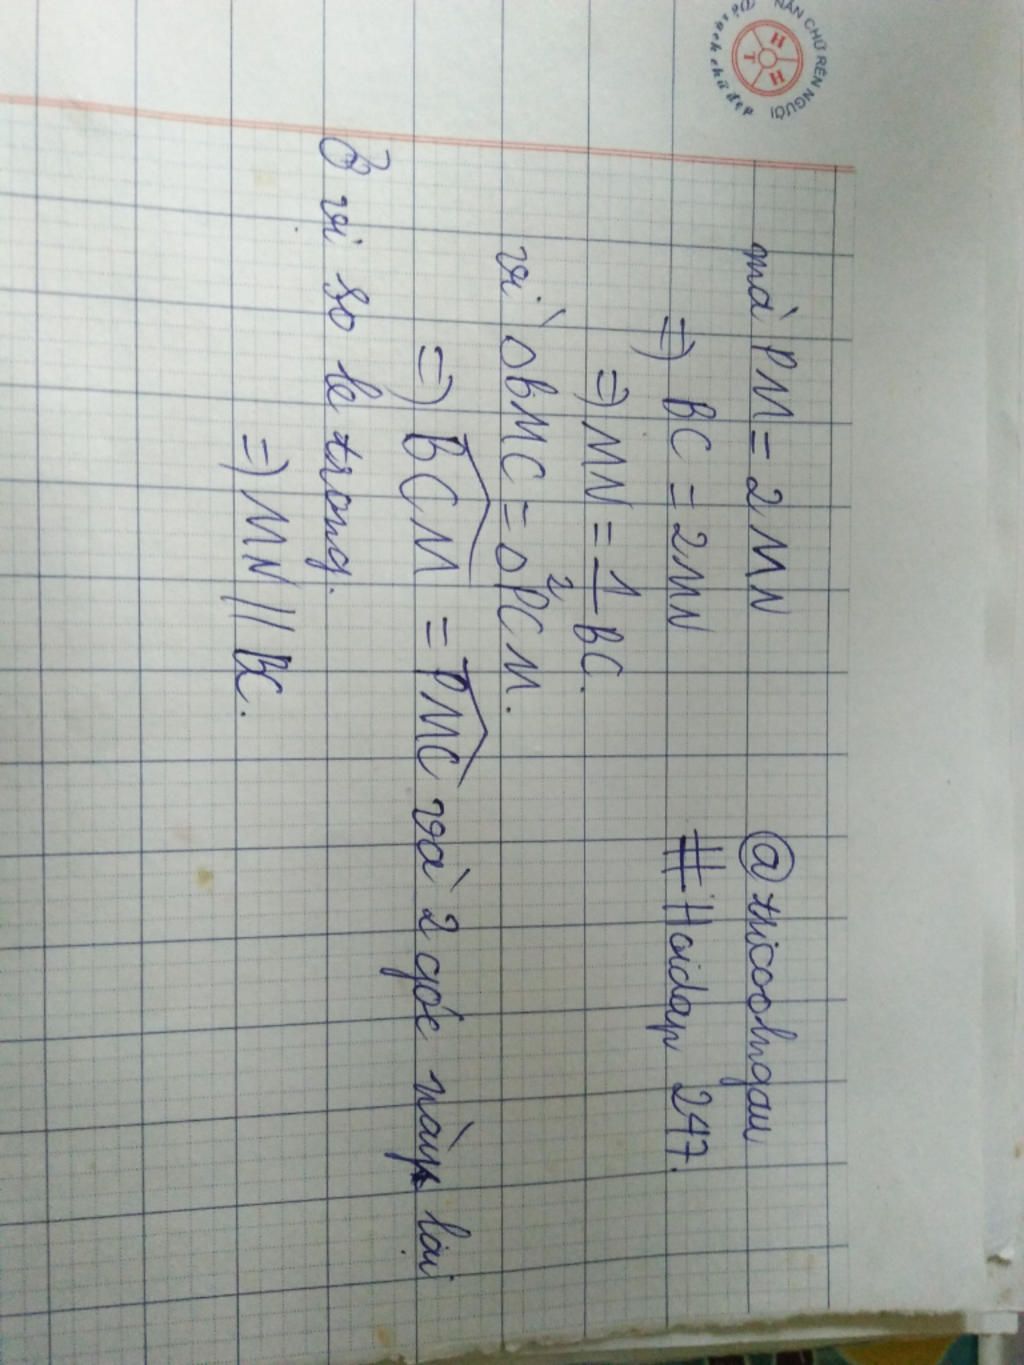 NẮN CHỮ RÈN NGƯỜI
H T H
mà PM = 2 MN
@thicoolngau
=) BC = 2MN
#Hoidap 247.
=) MN = 1/2 BC.
vì ΔBMC = ΔPCM.
=) BCM = PMC và 2 góc này lại
ở vị so le trong.
=) MN // BC.